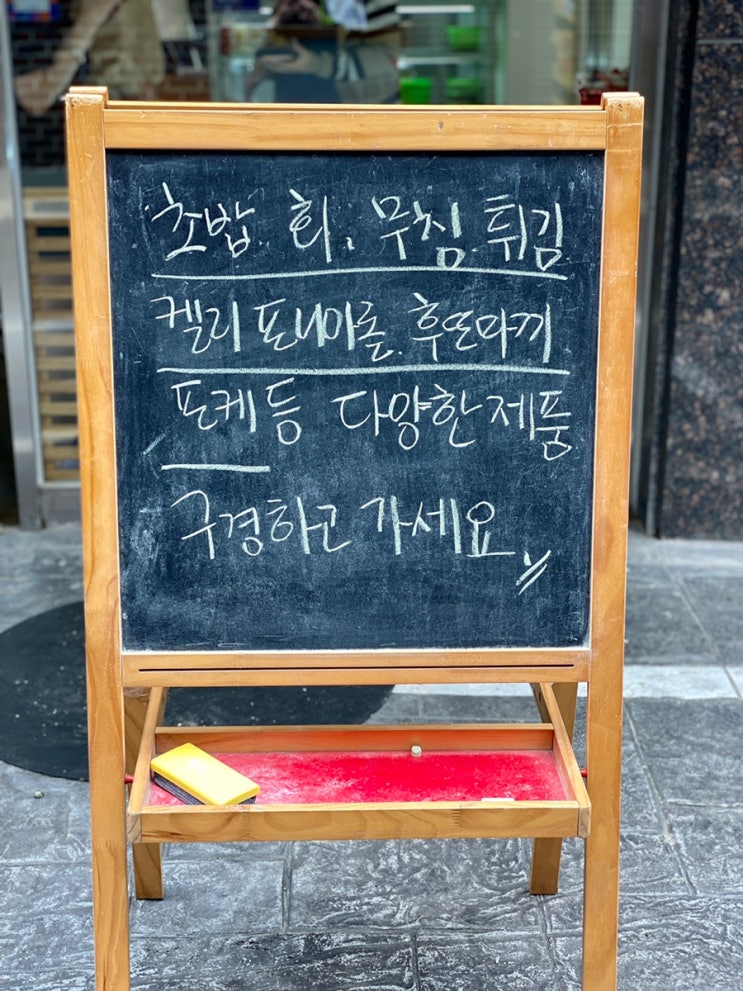 초밥. 회. 무침. 튀김
켈리포니아롤. 후또마끼
포케 등 다양한 제품
구경하고 가세요